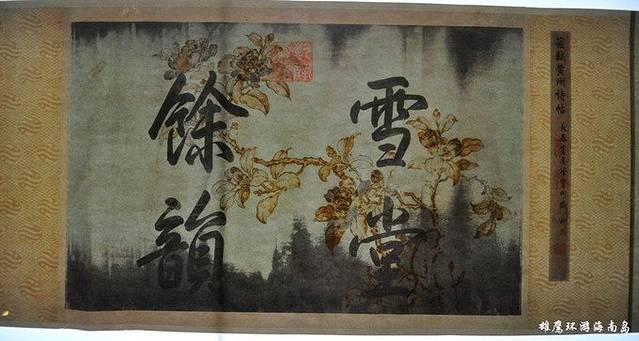 蘇軾黄州詩帖
雪堂
餘韻
雄鹰环游海南岛